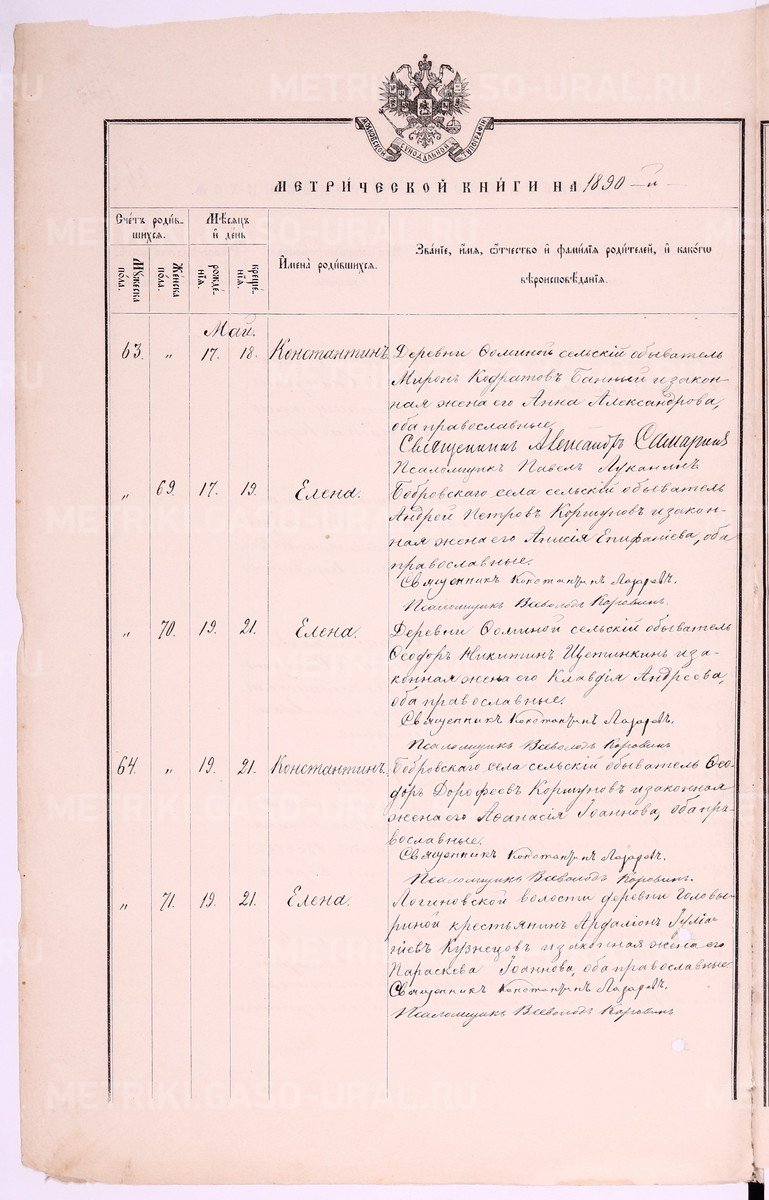 METRIKI.GASO-URAL.RU
МОСКОВСКОЙ СѴНОДАЛЬНОЙ ТИПОГРАФІИ
МЕТРИЧЕСКОЙ КНИГИ НА 1890 –й–
Счетъ родившихся.
Мѣсяцъ и день
Имена родившихся.
Званіе, имя, отчество и фамилія родителей, и какогѡ вѣроисповѣданія.
Мужеска пола.
Женска пола.
рожденія.
крещенія.
Май.
63. „ 17. 18. Константинъ. Деревни Ѳоминой сельскій обыватель
Миронъ Кодратовъ Банный и закон-
ная жена его Анна Александрова,
оба православные.
Священникъ Александръ Самаринъ
Псаломщикъ Павелъ Луканинъ
„ 69. 17. 19. Елена. Бобровскаго села сельскій обыватель
Андрей Петровъ Коршуновъ и закон-
ная жена его Анисія Епифаніева, оба
православные.
Священникъ Константинъ Лазаревъ.
Псаломщикъ Всеволодъ Коровинъ.
„ 70. 19. 21. Елена. Деревни Ѳоминой сельскій обыватель
Ѳеодоръ Никитинъ Щетинкинъ и за-
конная жена его Клавдія Андреева,
оба православные.
Священникъ Константинъ Лазаревъ.
Псаломщикъ Всеволодъ Коровинъ
64. „ 19. 21. Константинъ. Бобровскаго села сельскій обыватель Ѳео-
доръ Дорофеевъ Коршуновъ и законная
жена его Аѳанасія Іоаннова, оба пра-
вославные.
Священникъ Константинъ Лазаревъ.
Псаломщикъ Всеволодъ Коровинъ.
„ 71. 19. 21. Елена. Логиновской волости деревни Головы-
риной крестьянинъ Ардаліонъ Іуліа-
ніевъ Кузнецовъ и законная жена его
Параскева Іоаннова, оба православные
Священникъ Константинъ Лазаревъ.
Псаломщикъ Всеволодъ Коровинъ
METRIKI.GASO-URAL.RU